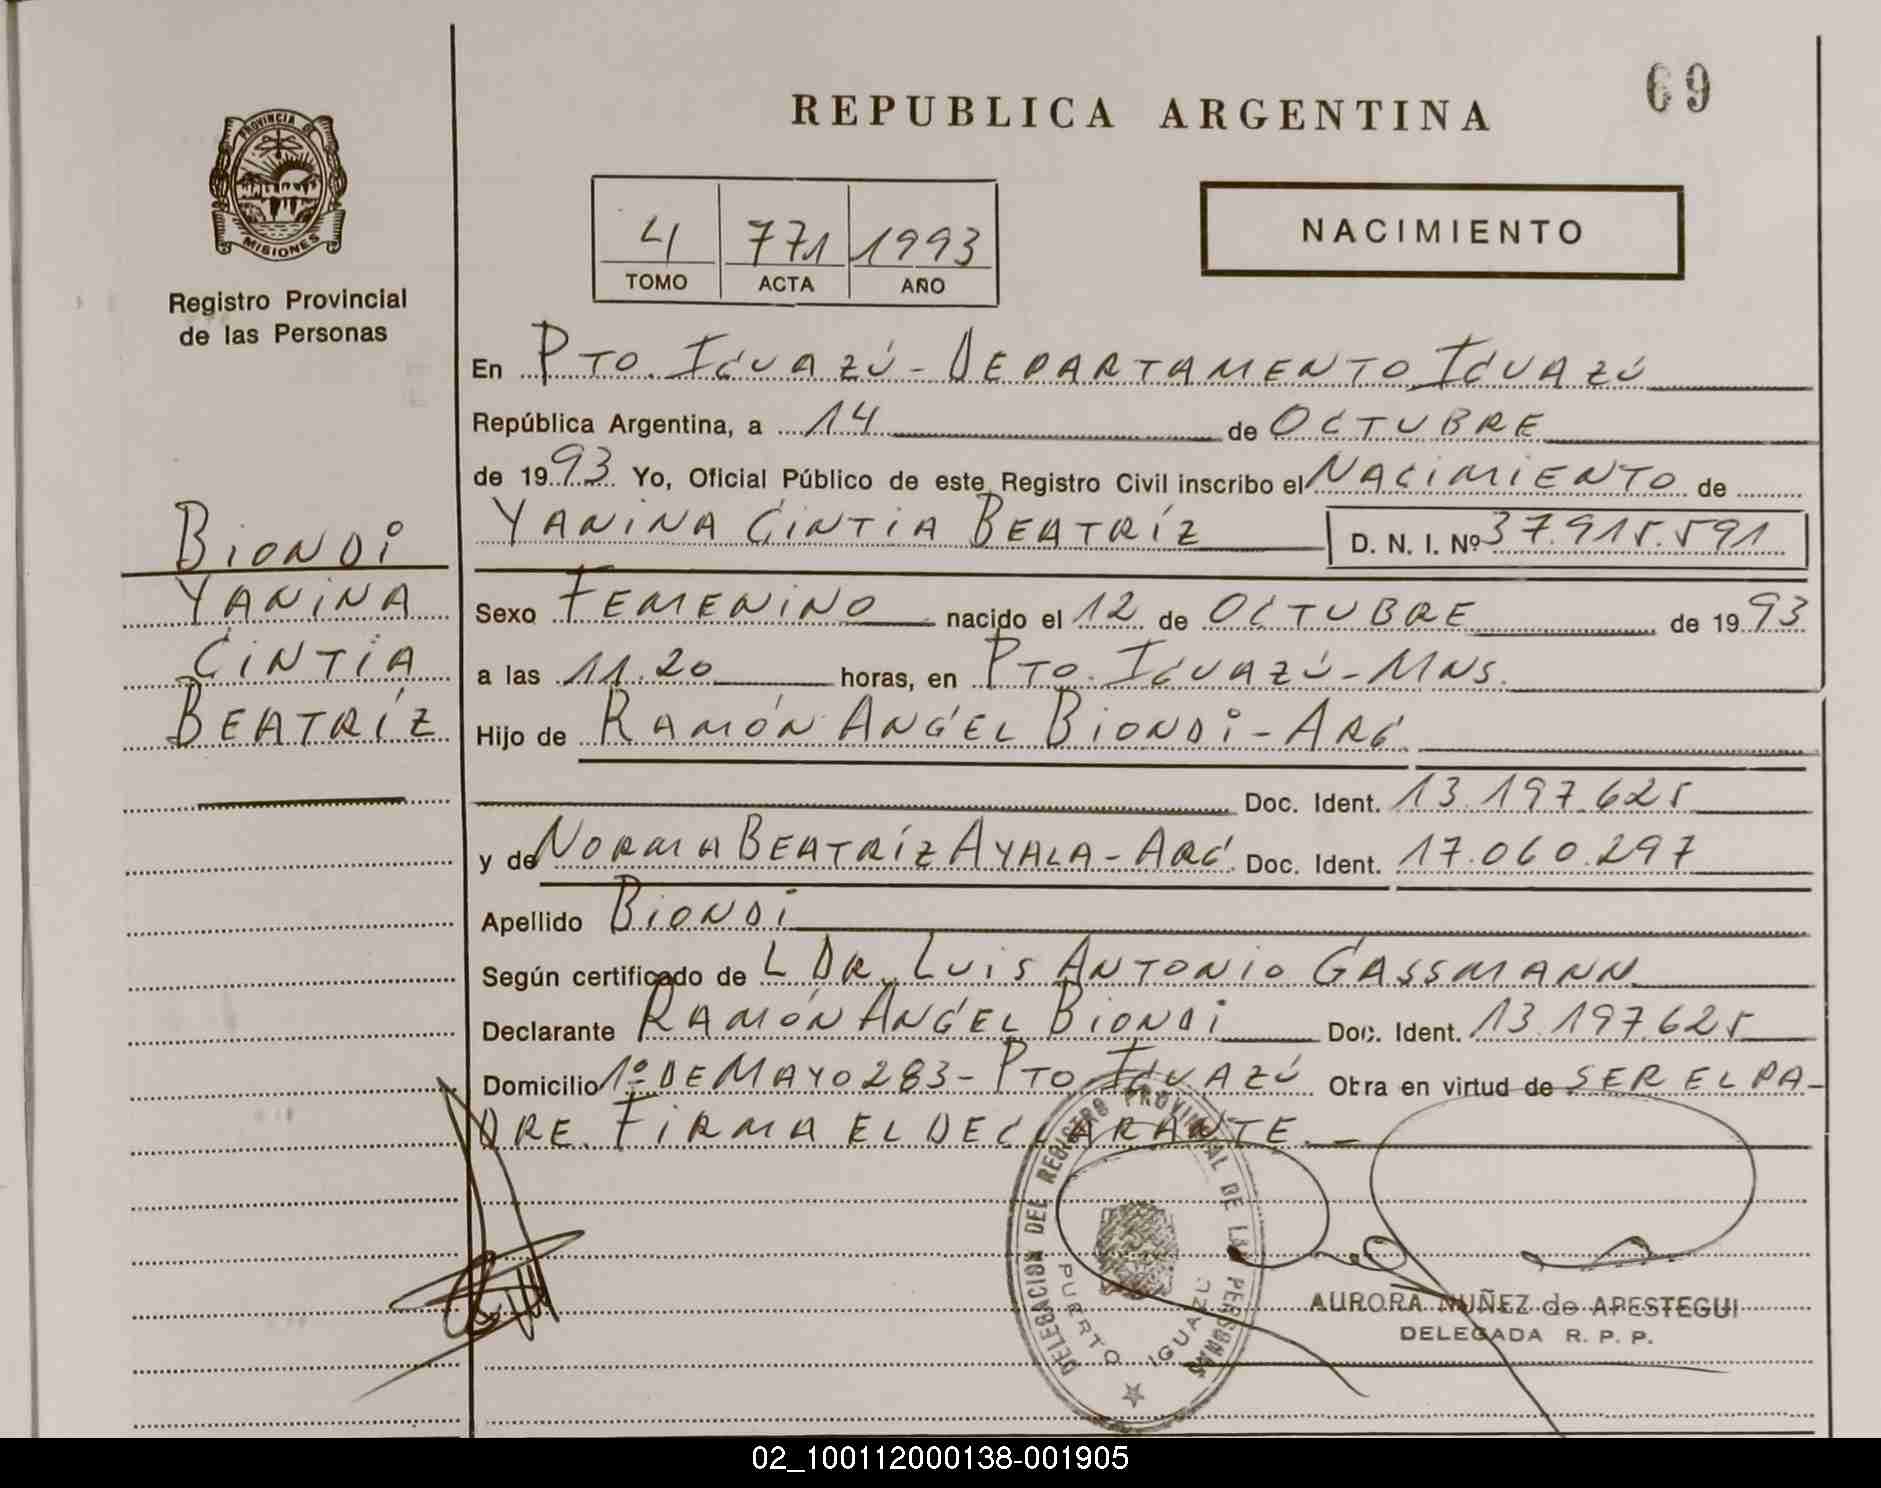 69
REPUBLICA ARGENTINA
PROVINCIA DE
MISIONES
Registro Provincial
de las Personas
4 771 1993
TOMO ACTA AÑO
NACIMIENTO
En PTO. IGUAZÚ - DEPARTAMENTO IGUAZÚ
República Argentina, a 14 de OCTUBRE
de 1993 Yo, Oficial Público de este Registro Civil inscribo el NACIMIENTO de
YANINA CINTIA BEATRÍZ D. N. I. Nº 37.915.591
BIONDI
YANINA
CINTIA
BEATRÍZ
Sexo FEMENINO nacido el 12 de OCTUBRE de 1993
a las 11.20 horas, en PTO. IGUAZÚ - MNS.
Hijo de RAMÓN ANGEL BIONDI - ARG
Doc. Ident. 13.197.625
y de NORMA BEATRÍZ AYALA - ARG. Doc. Ident. 17.060.297
Apellido BIONDI
Según certificado de L DR. LUIS ANTONIO GASSMANN
Declarante RAMÓN ANGEL BIONDI Doc. Ident. 13.197.625
Domicilio 1º DE MAYO 283 - PTO IGUAZÚ Obra en virtud de SER EL PA-
DRE. FIRMA EL DECLARANTE. -
DELEGACION DEL REGISTRO PROVINCIAL DE LAS PERSONAS
PUERTO IGUAZU
AURORA NUÑEZ de APESTEGUI
DELEGADA R. P. P.
02_100112000138-001905